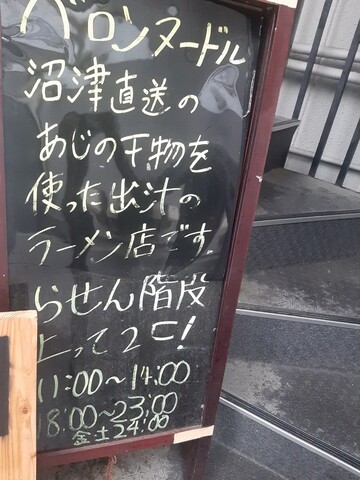 バロンヌードル
沼津直送の
あじの干物を
使った出汁の
ラーメン店です
らせん階段
上って2F!
11:00~14:00
18:00~23:00
金土24:00